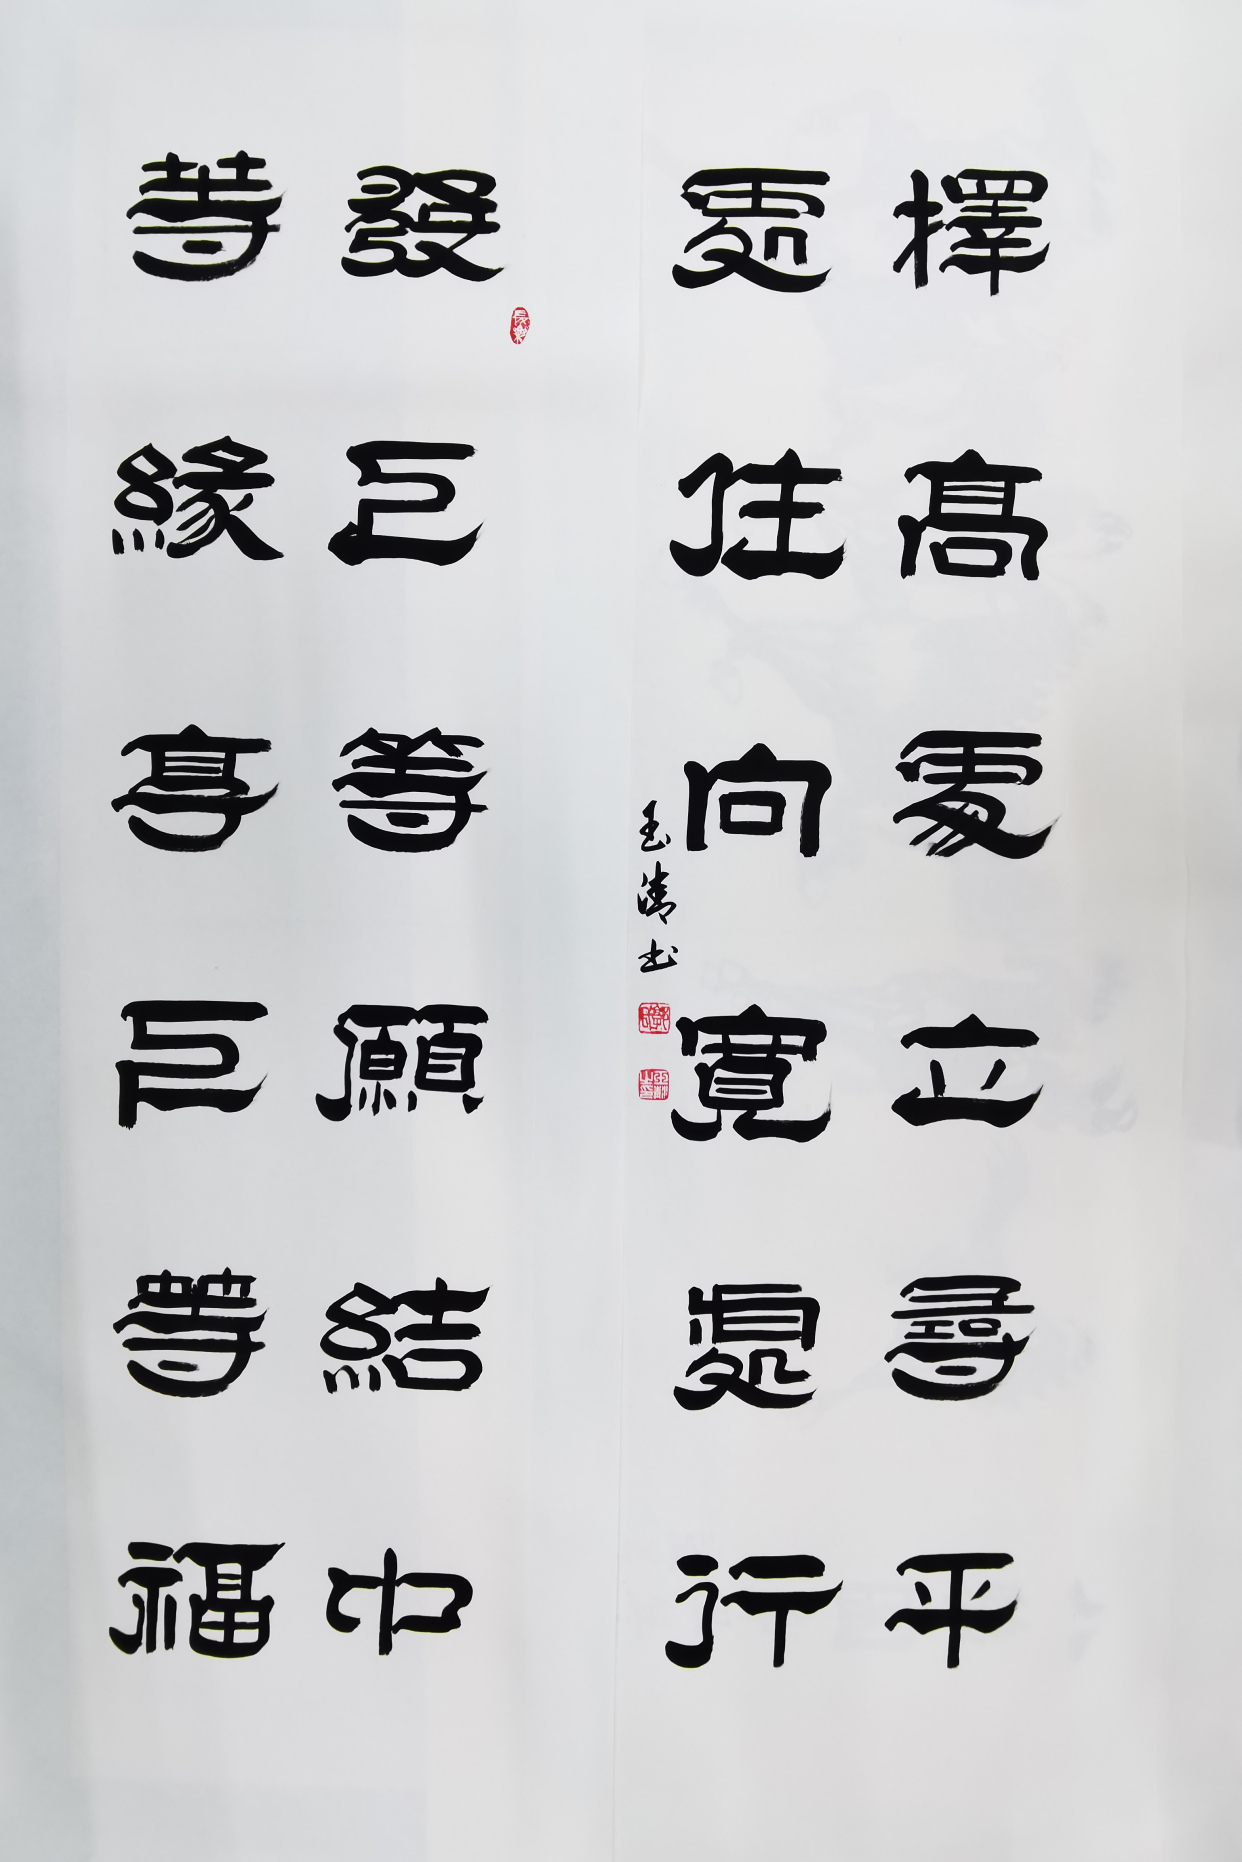 擇高處立尋平
處住向寬處行
發上等願結中
等緣享下等福
玉清书
長樂